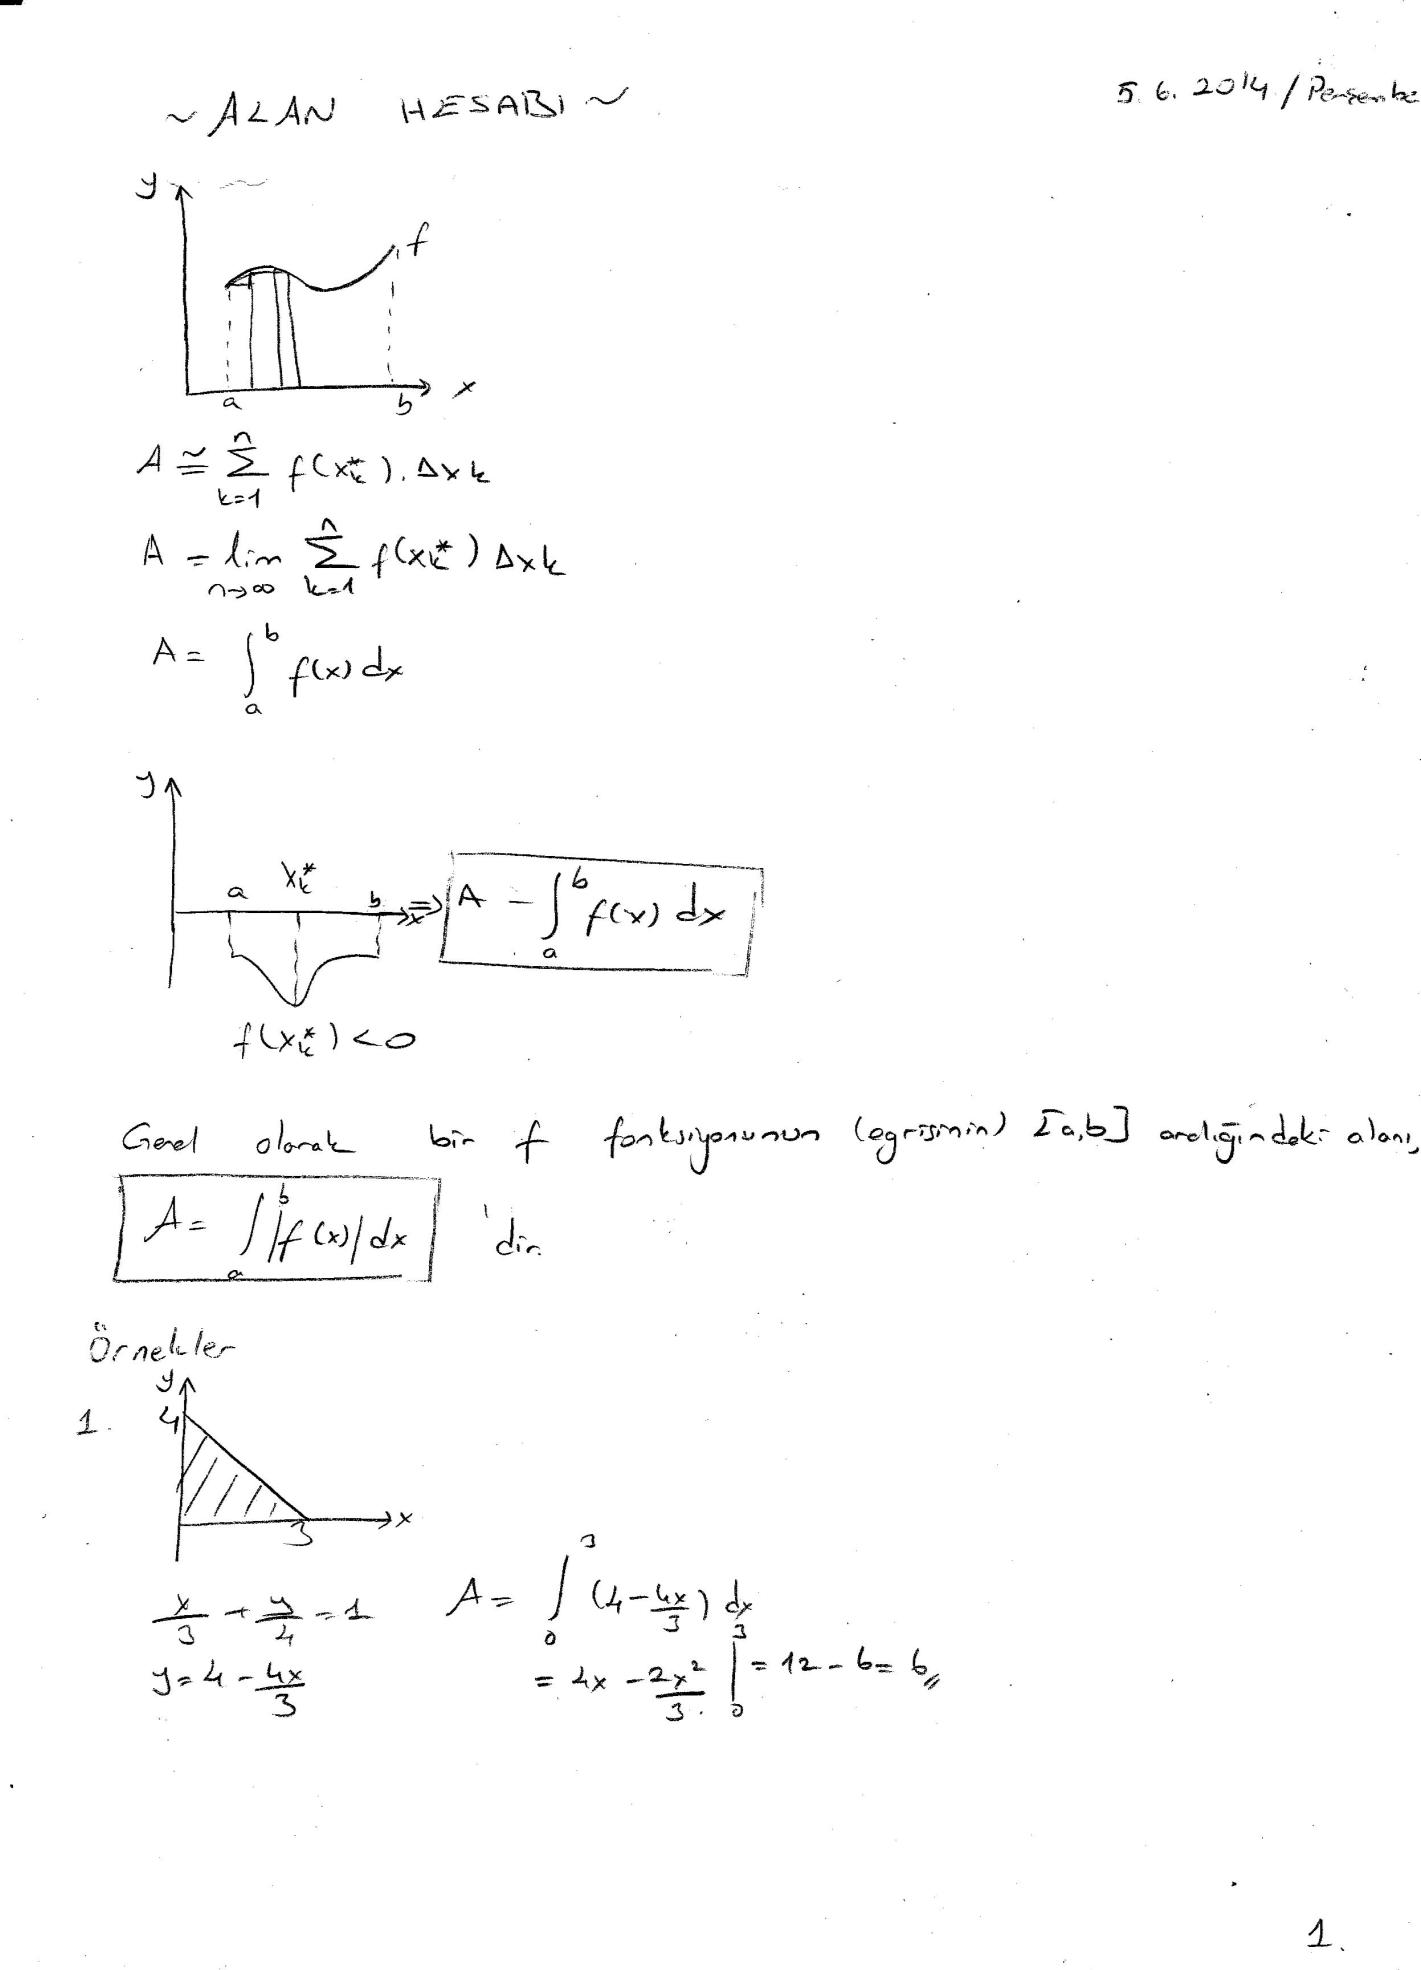 ~ ALAN HESABI ~
5.6.2014 / Perşembe
y
f
a b x
A ≅ Σ_{k=1}^{n} f(x_k^*). Δxk
A = lim_{n→∞} Σ_{k=1}^{n} f(x_k^*) Δxk
A = ∫_a^b f(x) dx
y
a x_k^* b x ⇒ A - ∫_a^b f(x) dx
f(x_k^*) < 0
Genel olarak bir f fonksiyonunun (egrisinin) [a,b] aralığındaki alanı,
A = ∫_a^b |f(x)| dx 'dir.
Örnekler
y
1. 4
3 x
x/3 + y/4 = 1 A = ∫_0^3 (4 - 4x/3) dx
y = 4 - 4x/3 = 4x - 2x²/3 |_0^3 = 12 - 6 = 6,,
1.